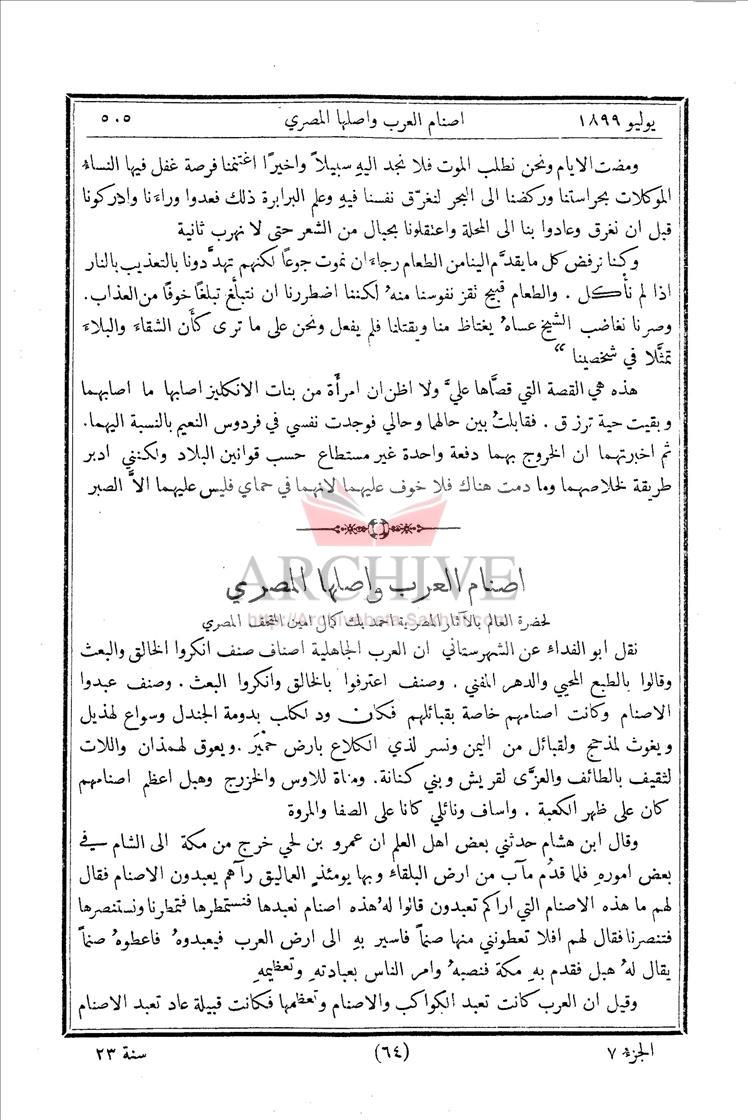 يوليو ١٨٩٩ اصنام العرب واصلها المصري ٥٠٥
ومضت الايام ونحن نطلب الموت فلا نجد اليهِ سبيلاً واخيرًا اغتنمنا فرصة غفل فيها النساء
الموكلات بحراستنا وركضنا الى البحر لنغرّق نفسنا فيهِ وعلم البرابرة ذلك فعدوا وراءَنا وادركونا
قبل ان نغرق وعادوا بنا الى المحلة واعتقلونا بحبال من الشعر حتى لا نهرب ثانية
وكنا نرفض كل ما يقدَّم الينا من الطعام رجاءَ ان نموت جوعًا لكنهم تهدَّدونا بالتعذيب بالنار
اذا لم نأْكل . والطعام قبيح نقز نفوسنا منهُ لكننا اضطررنا ان نتبلَّغ تبلغًا خوفًا من العذاب.
وصرنا نغاضب الشيخ عساهُ يغتاظ منا ويقتلنا فلم يفعل ونحن على ما ترى كأَن الشقاءَ والبلاءَ
تمثَّلا في شخصينا “
هذه هي القصة التي قصَّاها عليَّ ولا اظن ان امرأَة من بنات الانكليز اصابها ما اصابهما
وبقيت حية ترزق . فقابلتُ بين حالهما وحالي فوجدت نفسي في فردوس النعيم بالنسبة اليهما.
ثم اخبرتهما ان الخروج بهما دفعة واحدة غير مستطاع حسب قوانين البلاد ولكنني ادبر
طريقة لخلاصهما وما دمت هناك فلا خوف عليهما لانهما في حماي فليس عليهما الاَّ الصبر
ARCHIVE
اصنام العرب واصلها المصري
http://Archivebeta.Sakhrit.com
لحضرة العالم بالآثار المصرية احمد بك كمال امين المتحف المصري
نقل ابو الفداء عن الشهرستاني ان العرب الجاهلية اصناف صنف انكروا الخالق والبعث
وقالوا بالطبع المحيي والدهر المفني . وصنف اعترفوا بالخالق وانكروا البعث . وصنف عبدوا
الاصنام وكانت اصنامهم خاصة بقبائلهم فكان ود لكلب بدومة الجندل وسواع لهذيل
ويغوث لمذحج ولقبائل من اليمن ونسر لذي الكلاع بارض حِمْيَر . ويعوق لهمذان واللات
لثقيف بالطائف والعزَّى لقريش وبني كنانة. ومناة للاوس والخزرج وهبل اعظم اصنامهم
كان على ظهر الكعبة . واساف ونائلي كانا على الصفا والمروة
وقال ابن هشام حدثني بعض اهل العلم ان عمرو بن لحي خرج من مكة الى الشام في
بعض امورهِ فلما قدُم مآب من ارض البلقاء وبها يومئذٍ العماليق رآهم يعبدون الاصنام فقال
لهم ما هذه الاصنام التي اراكم تعبدون قالوا لهُ هذه اصنام نعبدها فنستمطرها فتمطرنا ونستنصرها
فتنصرنا فقال لهم افلا تعطونني منها صنماً فاسير بهِ الى ارض العرب فيعبدوهُ فاعطوهُ صنماً
يقال لهُ هبل فقدم بهِ مكة فنصبهُ وامر الناس بعبادتهِ وتعظيمهِ
وقيل ان العرب كانت تعبد الكواكب والاصنام وتعظمها فكانت قبيلة عاد تعبد الاصنام
الجزء ٧ (٦٤) سنة ٢٣